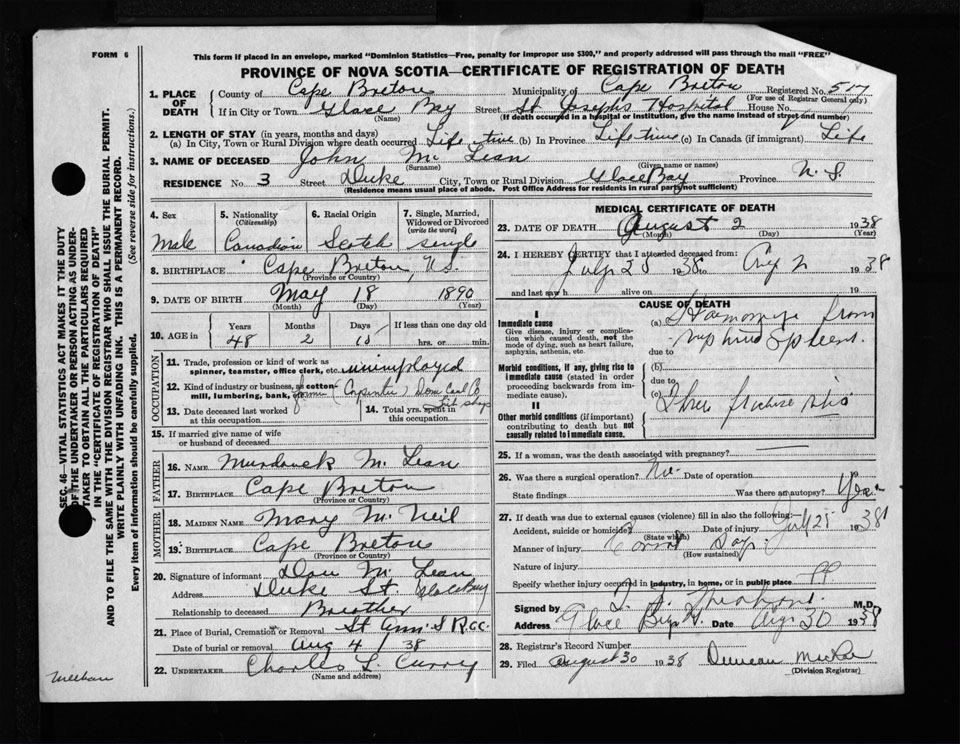 FORM 6
This form if placed in an envelope, marked "Dominion Statistics—Free, penalty for improper use $300," and properly addressed will pass through the mail "FREE"
PROVINCE OF NOVA SCOTIA—CERTIFICATE OF REGISTRATION OF DEATH
1. PLACE OF DEATH
County of Cape Breton Municipality of Cape Breton Registered No. 517
(For use of Registrar General only)
If in City or Town Glace Bay Street St Josephs Hospital House No.
(Name) (If death occurred in a hospital or institution, give the name instead of street and number)
2. LENGTH OF STAY (in years, months and days)
(a) In City, Town or Rural Division where death occurred Life time (b) In Province Lifetime (c) In Canada (if immigrant) Life
3. NAME OF DECEASED John McLean
(Surname) (Given name or names)
RESIDENCE No. 3 Street Duke City, Town or Rural Division Glace Bay Province N. S.
(Residence means usual place of abode. Post Office Address for residents in rural parts not sufficient)
4. Sex
Male
5. Nationality
(Citizenship)
Canadian
6. Racial Origin
Scotch
7. Single, Married, Widowed or Divorced
(write the word)
single
8. BIRTHPLACE Cape Breton, N.S.
(Province or Country)
9. DATE OF BIRTH May 18 1890
(Month) (Day) (Year)
10. AGE in Years Months Days If less than one day old
48 2 hrs. or min.
OCCUPATION
11. Trade, profession or kind of work as spinner, teamster, office clerk, etc. unemployed
12. Kind of industry or business, as cotton-mill, lumbering, bank, Carpenter Dom Coal Co
13. Date deceased last worked at this occupation
14. Total yrs. spent in this occupation
15. If married give name of wife or husband of deceased
FATHER
16. NAME Murdock McLean
17. BIRTHPLACE Cape Breton
(Province or Country)
MOTHER
18. MAIDEN NAME Mary McNeil
19. BIRTHPLACE Cape Breton
(Province or Country)
20. Signature of informant Dan McLean
Address Duke St. Glace Bay
Relationship to deceased Brother
21. Place of Burial, Cremation or Removal St Ann's
Date of burial or removal Aug 4 / 38
22. UNDERTAKER Charles L. Curry
(Name and address)
MEDICAL CERTIFICATE OF DEATH
23. DATE OF DEATH August 2 1938
(Month) (Day) (Year)
24. I HEREBY CERTIFY that I attended deceased from:
July 28 1938 to Aug 2 1938
and last saw h alive on 19
CAUSE OF DEATH
I
Immediate cause
Give disease, injury or complication which caused death, not the mode of dying, such as heart failure, asphyxia, asthenia, etc.
(a) Haemorrage from
ruptured spleen.
due to
Morbid conditions, if any, giving rise to immediate cause (stated in order proceeding backwards from immediate cause).
(b)
due to
(c) Three fracture ribs
II
Other morbid conditions (if important) contributing to death but not causally related to immediate cause.
25. If a woman, was the death associated with pregnancy?
26. Was there a surgical operation? No. Date of operation 19
State findings Was there an autopsy? Yes
27. If death was due to external causes (violence) fill in also the following:
Accident, suicide or homicide? Date of injury July 25 1938
(State which)
Manner of injury
(How sustained)
Nature of injury
Specify whether injury occurred in industry, in home, or in public place
Signed by M.D.
Address Glace Bay Date Aug 30 1938
28. Registrar's Record Number
29. Filed August 30 1938 Duncan McRae
(Division Registrar)
SEC. 46—VITAL STATISTICS ACT MAKES IT THE DUTY OF THE UNDERTAKER OR PERSON ACTING AS UNDERTAKER TO OBTAIN ALL THE PARTICULARS REQUIRED IN THE "CERTIFICATE OF REGISTRATION OF DEATH" AND TO FILE THE SAME WITH THE DIVISION REGISTRAR WHO SHALL ISSUE THE BURIAL PERMIT.
WRITE PLAINLY WITH UNFADING INK. THIS IS A PERMANENT RECORD.
Every item of information should be carefully supplied. (See reverse side for instructions.)